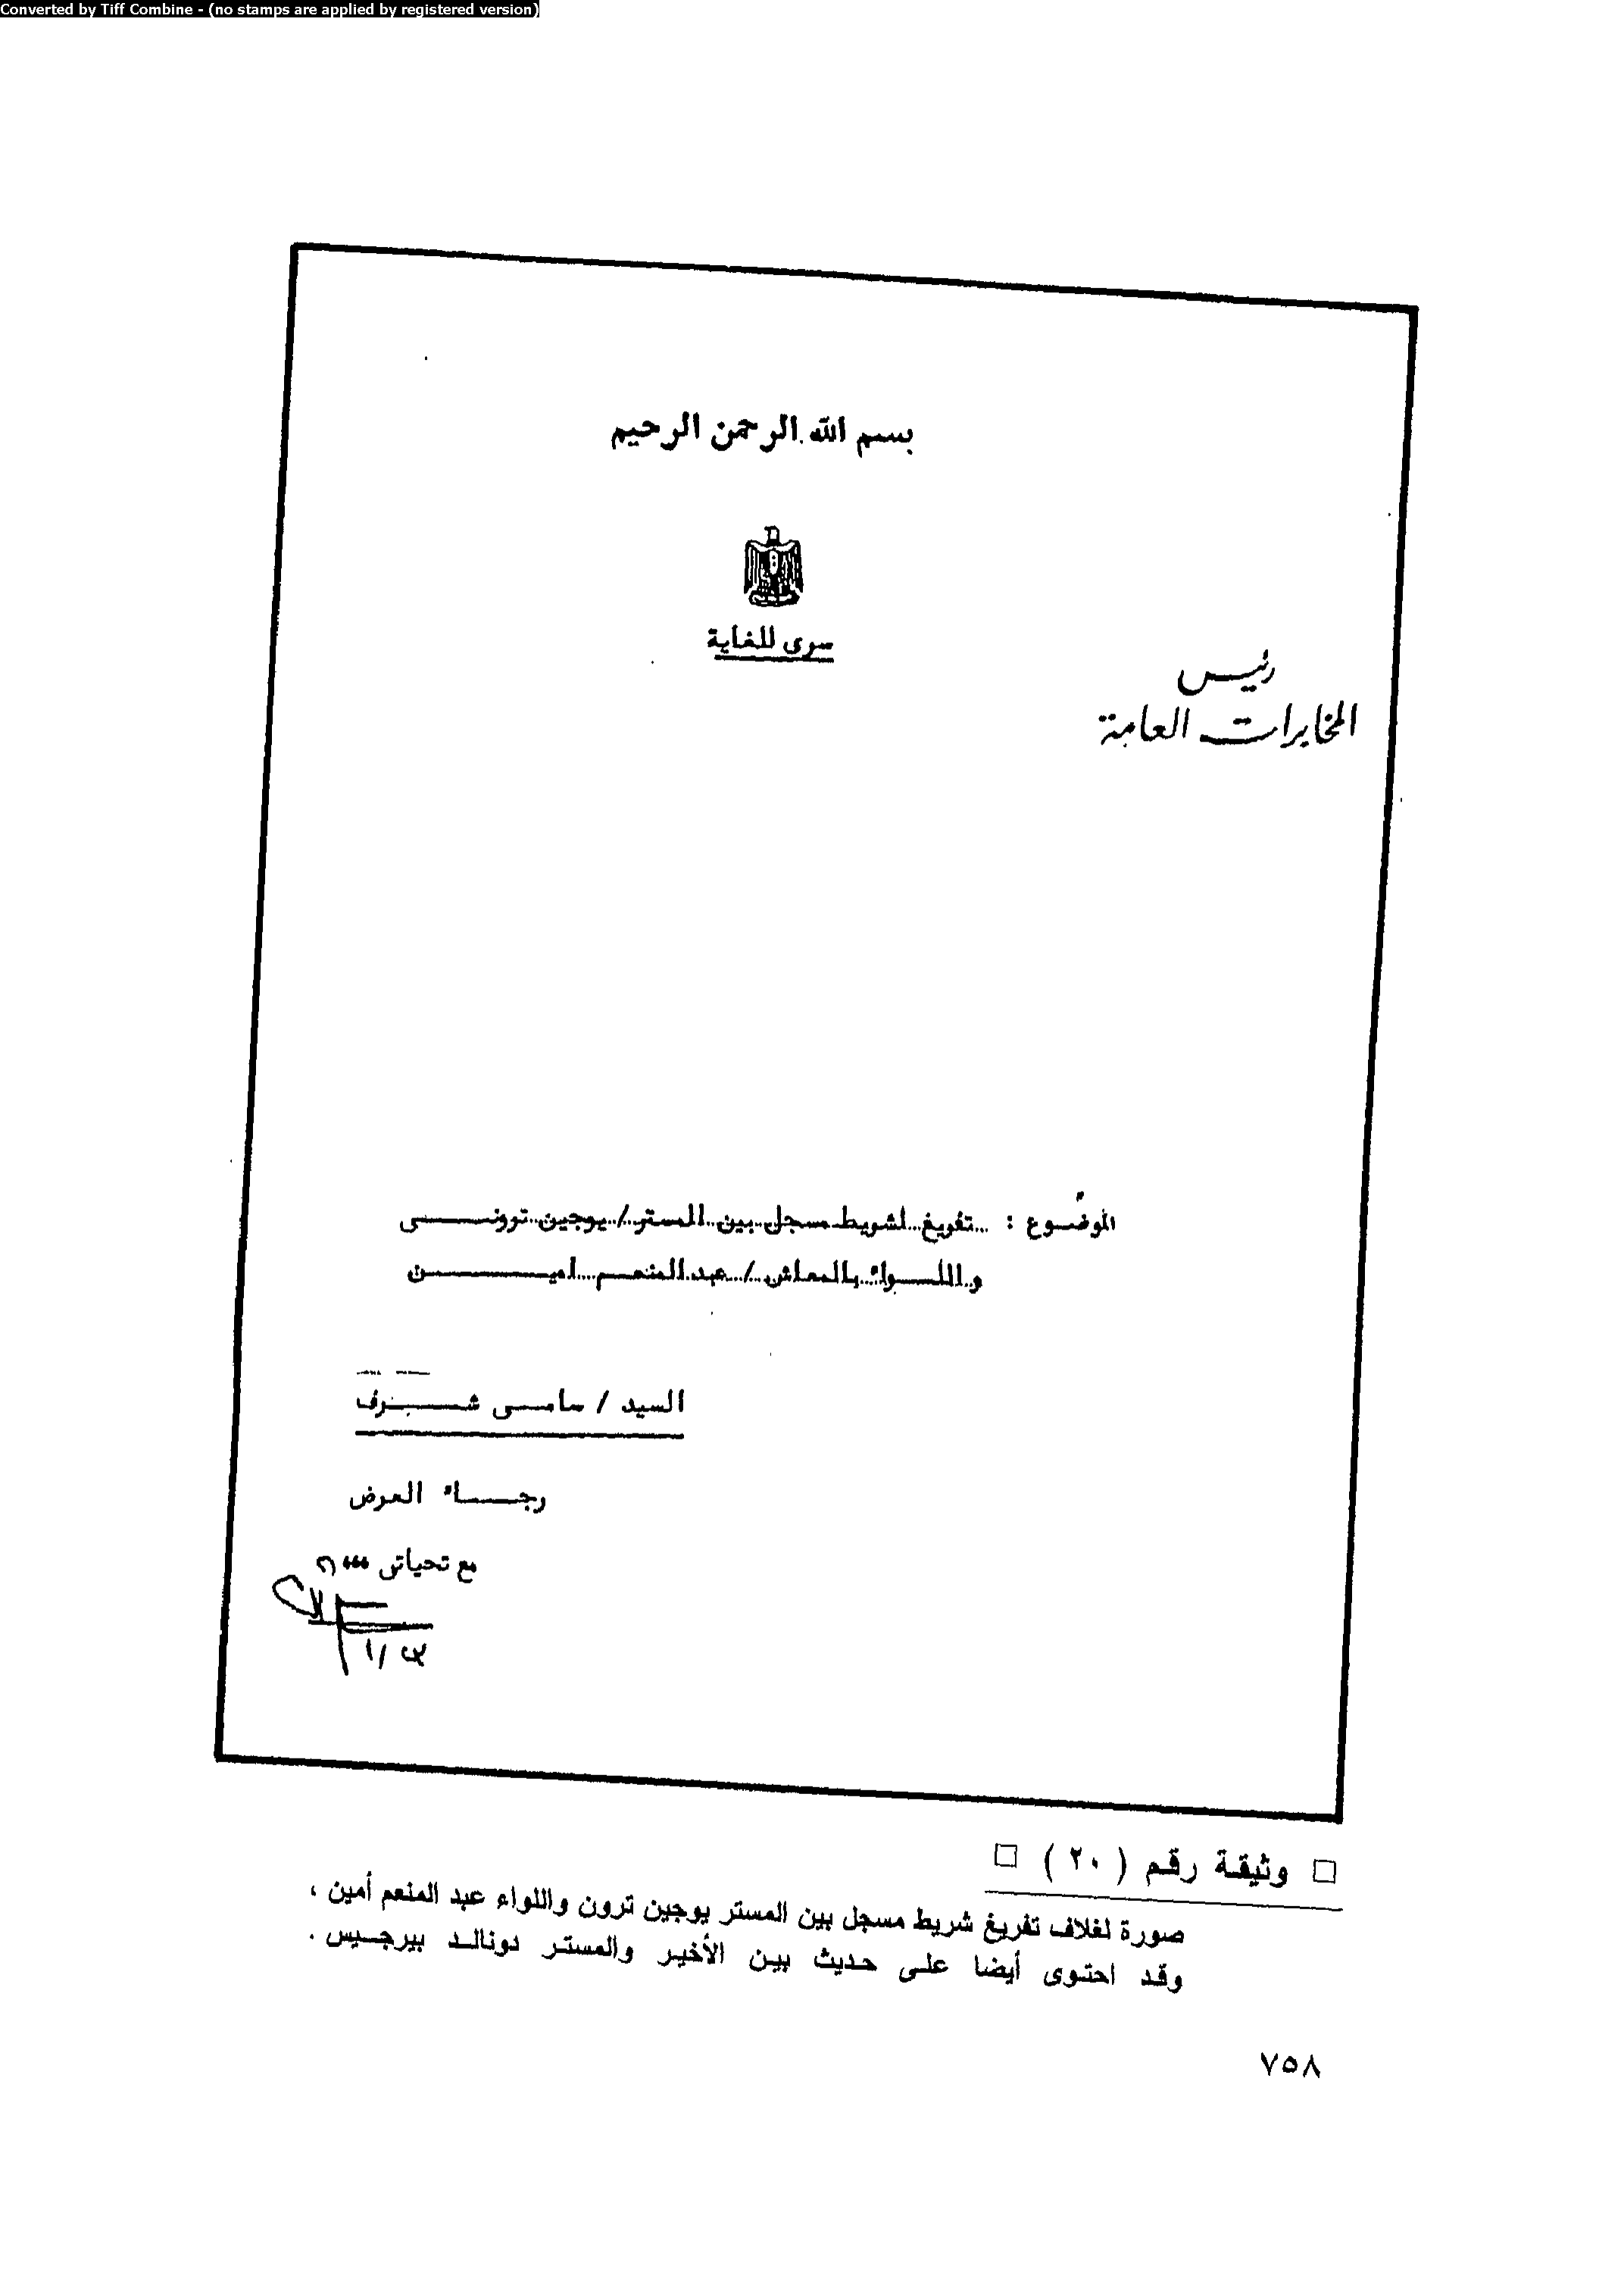 Converted by Tiff Combine - (no stamps are applied by registered version)
بسم الله الرحمن الرحيم
سرى للغاية
رئيس
المخابرات العامة
الموضوع : تفريغ لشريط مسجل بين المستر / يوجين ترونى
واللواء بالمعاش / عبد المنعم امين
السيد / سامى شرف
رجاء العرض
مع تحياتى ،،،
□ وثيقة رقم ( ٢٠ ) □
صورة لغلاف تفريغ شريط مسجل بين المستر يوجين ترون واللواء عبد المنعم أمين ،
وقد احتوى أيضا على حديث بين الأخير والمستر دونالد بيرجيس .
٧٥٨